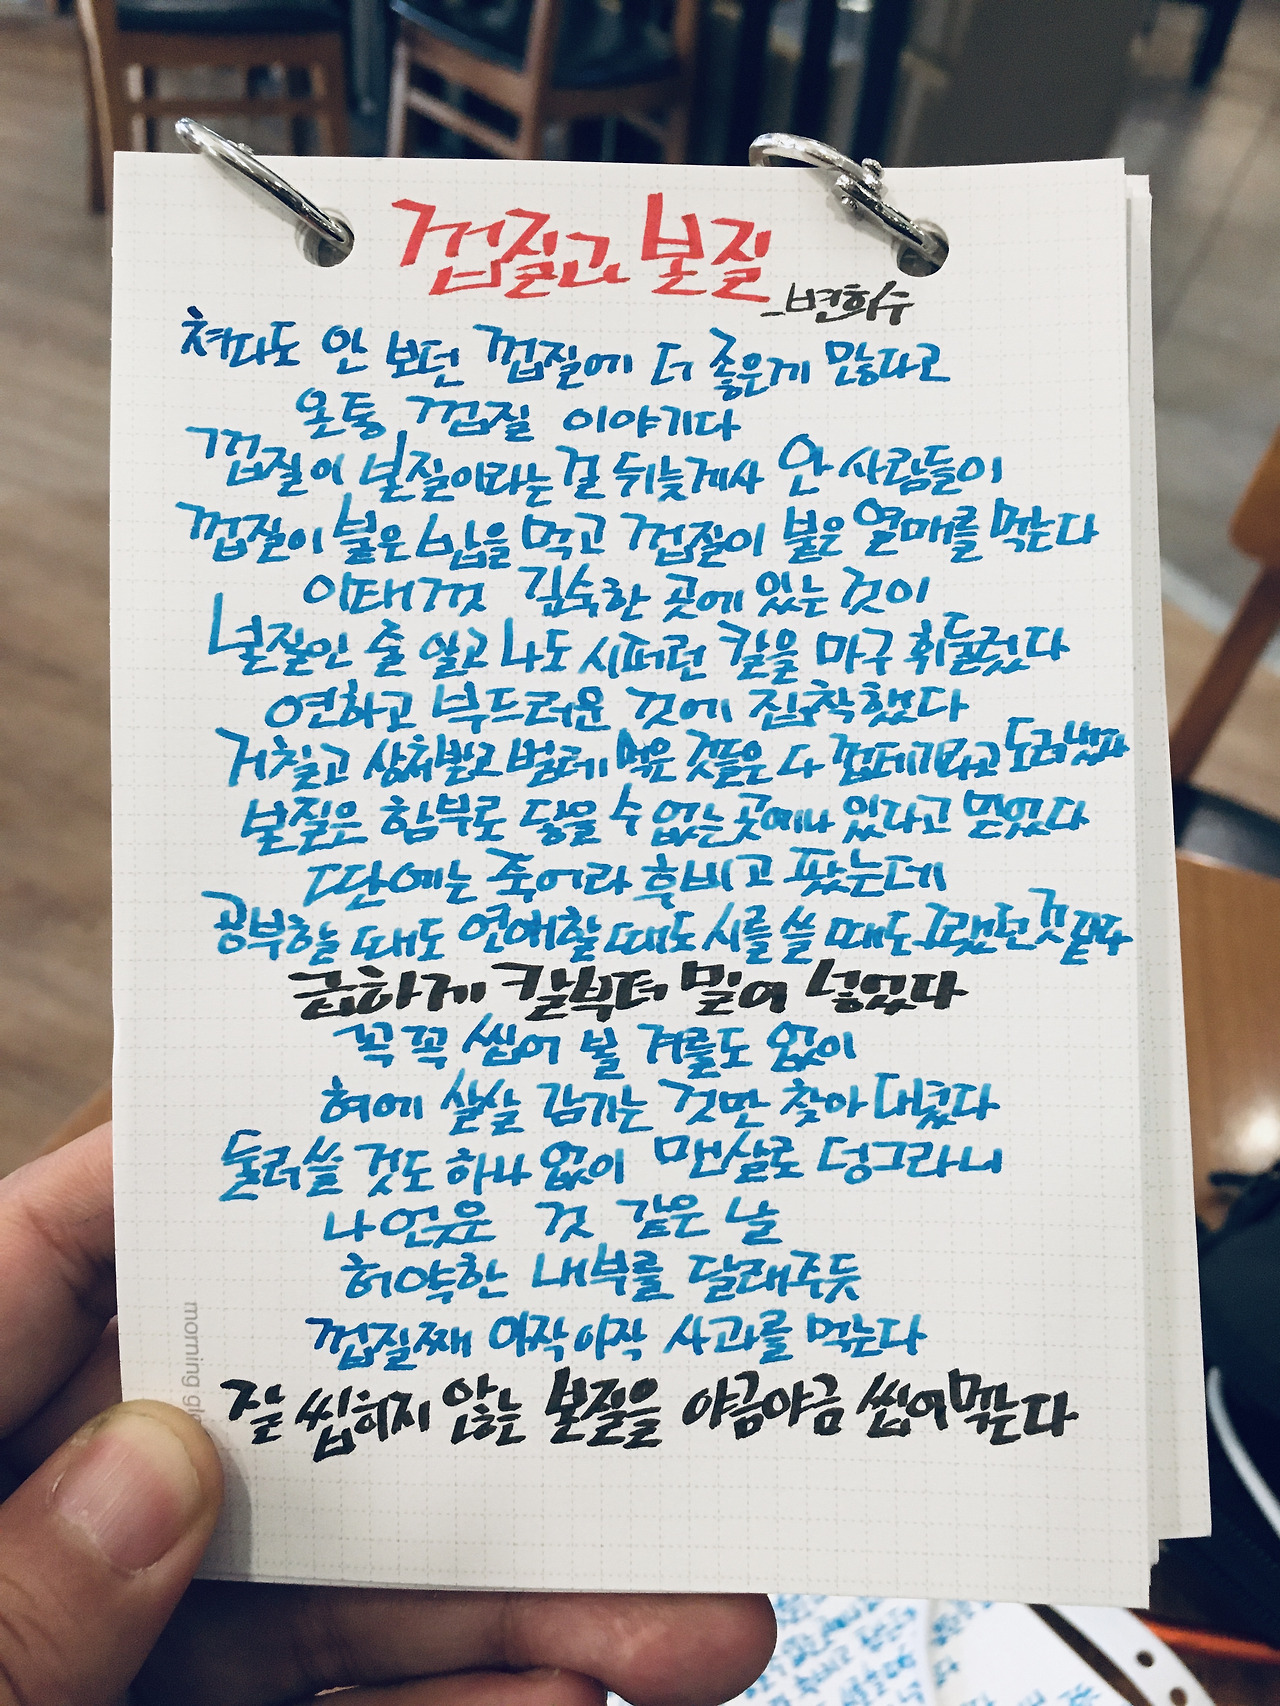 껍질과 본질
-변희수
쳐다도 안 보던 껍질에 더 좋은게 많다고
온통 껍질 이야기다
껍질이 본질이라는 걸 뒤늦게사 안 사람들이
껍질이 붙은 밥을 먹고 껍질이 붙은 열매를 먹는다
이태껏 깊숙한 곳에 있는 것이
본질인 줄 알고 나도 시퍼런 칼을 마구 휘둘렀다
연하고 부드러운 것에 집착했다
거칠고 상처받고 벌레 먹은 것들은 다 껍데기라고 도려냈다
본질은 함부로 닿을 수 없는 곳에나 있다고 믿었다
딴에는 죽어라 후비고 팠는데
공부할 때도 연애할 때도 시를 쓸 때도 그랬던 것 같다
급하게 칼부터 밀어 넣었다
꼭꼭 씹어 볼 겨를도 없이
혀에 살살 감기는 것만 찾아 대녔다
둘러쓸 것도 하나 없이 맨살로 덩그라니
나앉은 것 같은 날
허약한 내부를 달래주듯
껍질째 아작아작 사과를 먹는다
잘 씹히지 않는 본질을 야금야금 씹어먹는다
morning gl